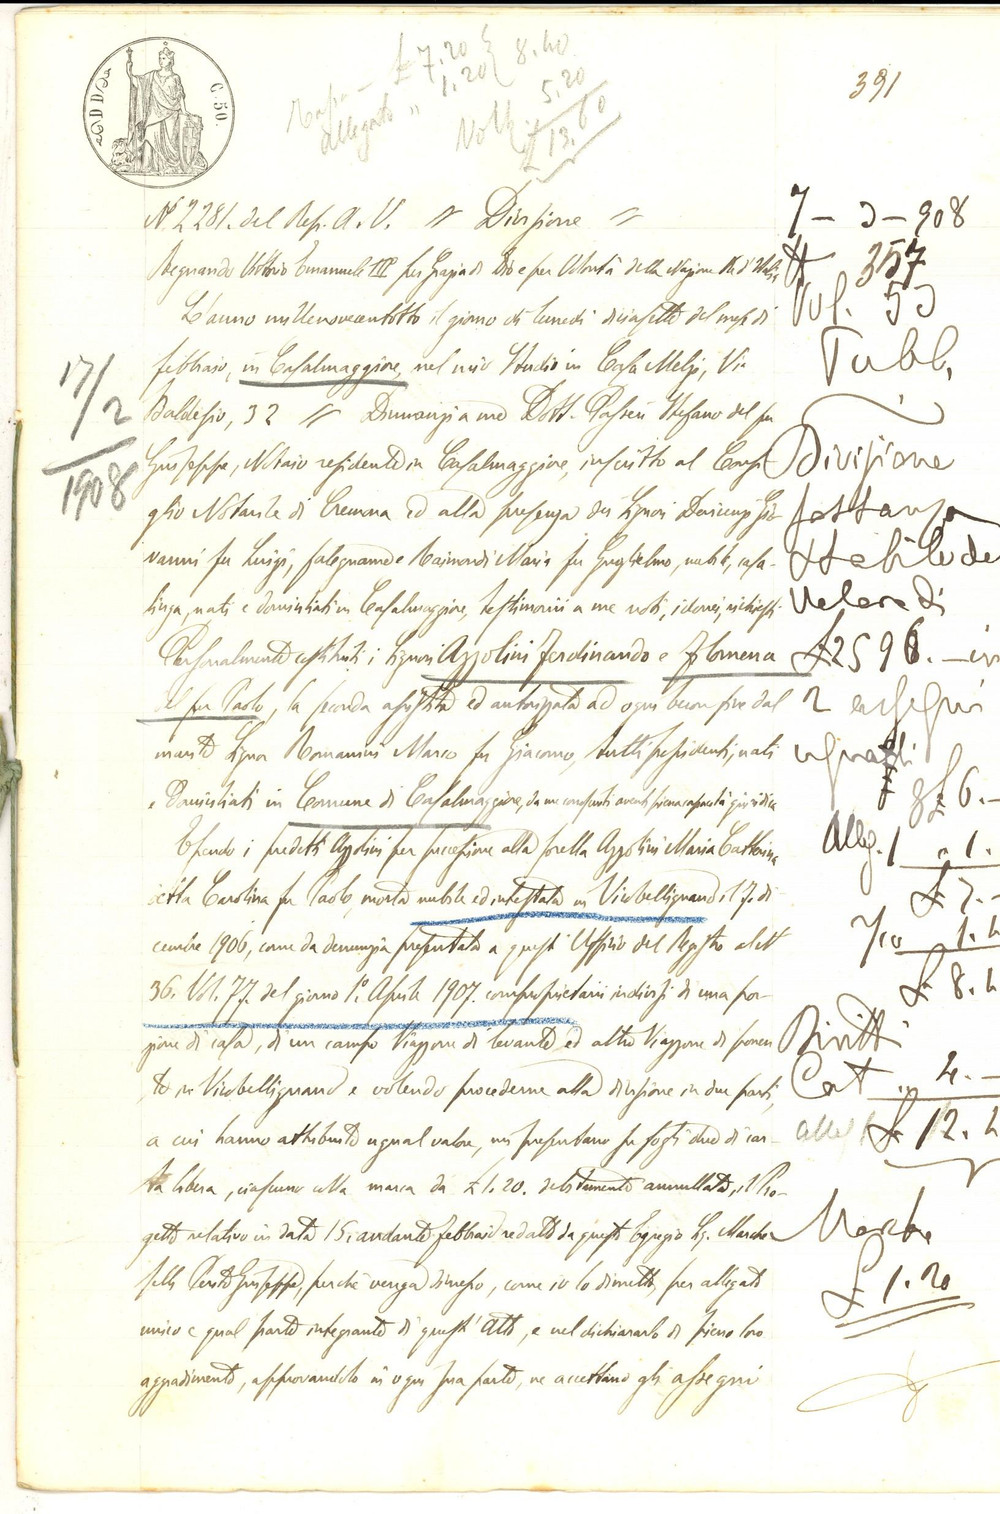 C. 50.
£ 7.20
1.20
8.40
5.20
£ 13.60
Tassa
allegato "
391
N° 2281. del Rep. A. V. // Divisione //
Regnando Vittorio Emanuele III per grazia di Dio e per Volontà della Nazione Re d'Italia
L'anno millenovecentotto il giorno di lunedì diciasette del mese di
febbraio, in Casalmaggiore, nel mio Studio in Casa Melzi, Via
Baldesio, 32 // Dinnanzi a me Dott. Passeri Stefano del fu
Giuseppe, Notaio residente in Casalmaggiore, inscritto al Consi
glio Notarile di Cremona ed alla presenza dei Signori Gio-
vanni fu Luigi, falegname e Raimondi Maria fu Guglielmo, nubile, casa-
linga, nati e domiciliati in Casalmaggiore, testimoni a me noti, idonei, richiesti
Personalmente costituiti i Signori Azzolini Ferdinando e Filomena
del fu Paolo, la seconda assistita ed autorizzata ad ogni buon fine dal
marito Signor Romanini Marco fu Giacomo, tutti possidenti, nati
e domiciliati in Comune di Casalmaggiore, da me conosciuti aventi piena capacità giuridica
Essendo i predetti Azzolini per successione alla sorella Azzolini Maria Catterina
detta Carolina fu Paolo, morta nubile ed intestata in Vicobellignano il 7. di-
cembre 1906, come da denunzia presentata a questo Ufficio del Registro al N
36. Vol. 77. del giorno 1° Aprile 1907. comproprietari indivisi di una por-
zione di casa, di un campo Viazzone di levante ed altro Viazzone di ponen
te in Vicobellignano e volendo procederne alla divisione in due parti,
a cui hanno attribuito egual valore, mi presentano su fogli due di car-
ta libera, ciascuno colla marca da £ 1.20. debitamente annullata, il Pro-
getto relativo in data 15, andante febbraio redatto da questo Egregio Sig. Marche
selli Perito Giuseppe, perché venga dimesso, come io lo dimetto, per allegato
unico e qual parte integrante di quest' Atto, e nel dichiararlo di pieno loro
aggradimento, approvandolo in ogni sua parte, ne accettano gli assegni
17/2
1908
7 - 3 - 908
N 357
Vol. 53
Pubb.
Divisione
sostanza
stabile del
valore di
£ 2596. - in
2 assegni
uguali
£ 6. -
Alleg. 1 " 1.
£ 7. -
£ 8.4
Diritti
Cert " 4. -
£ 12.4
Marche
£ 1.20